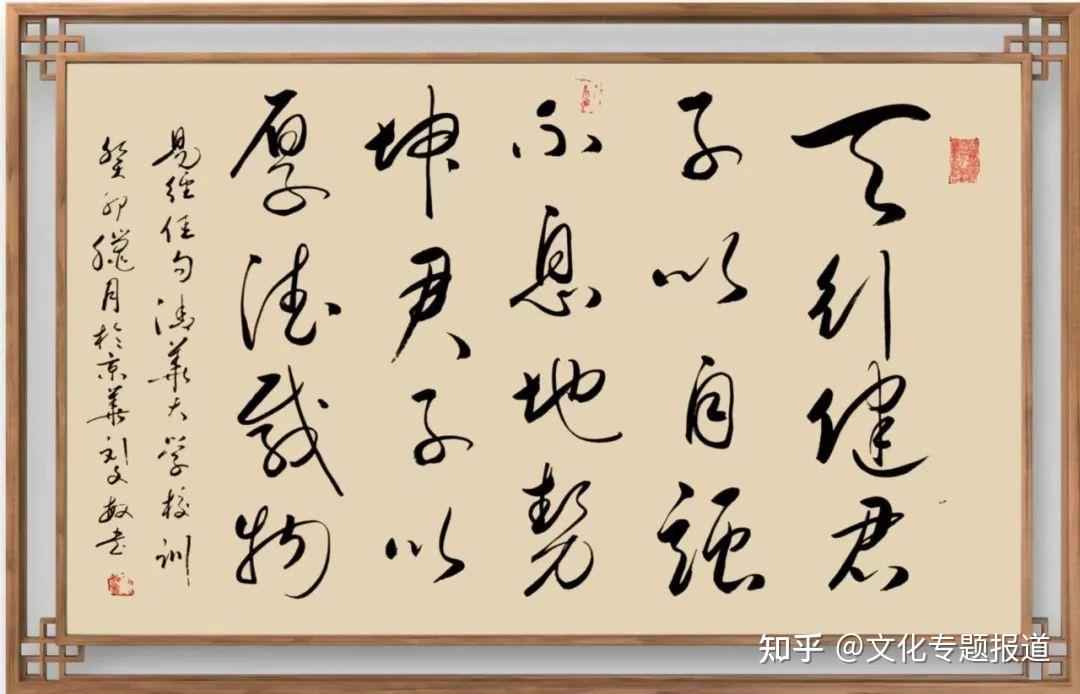 天行健君
子以自强
不息地势
坤君子以
厚德载物
易经佳句清华大学校训
癸卯腊月於京华刘文敏书
知乎 @文化专题报道